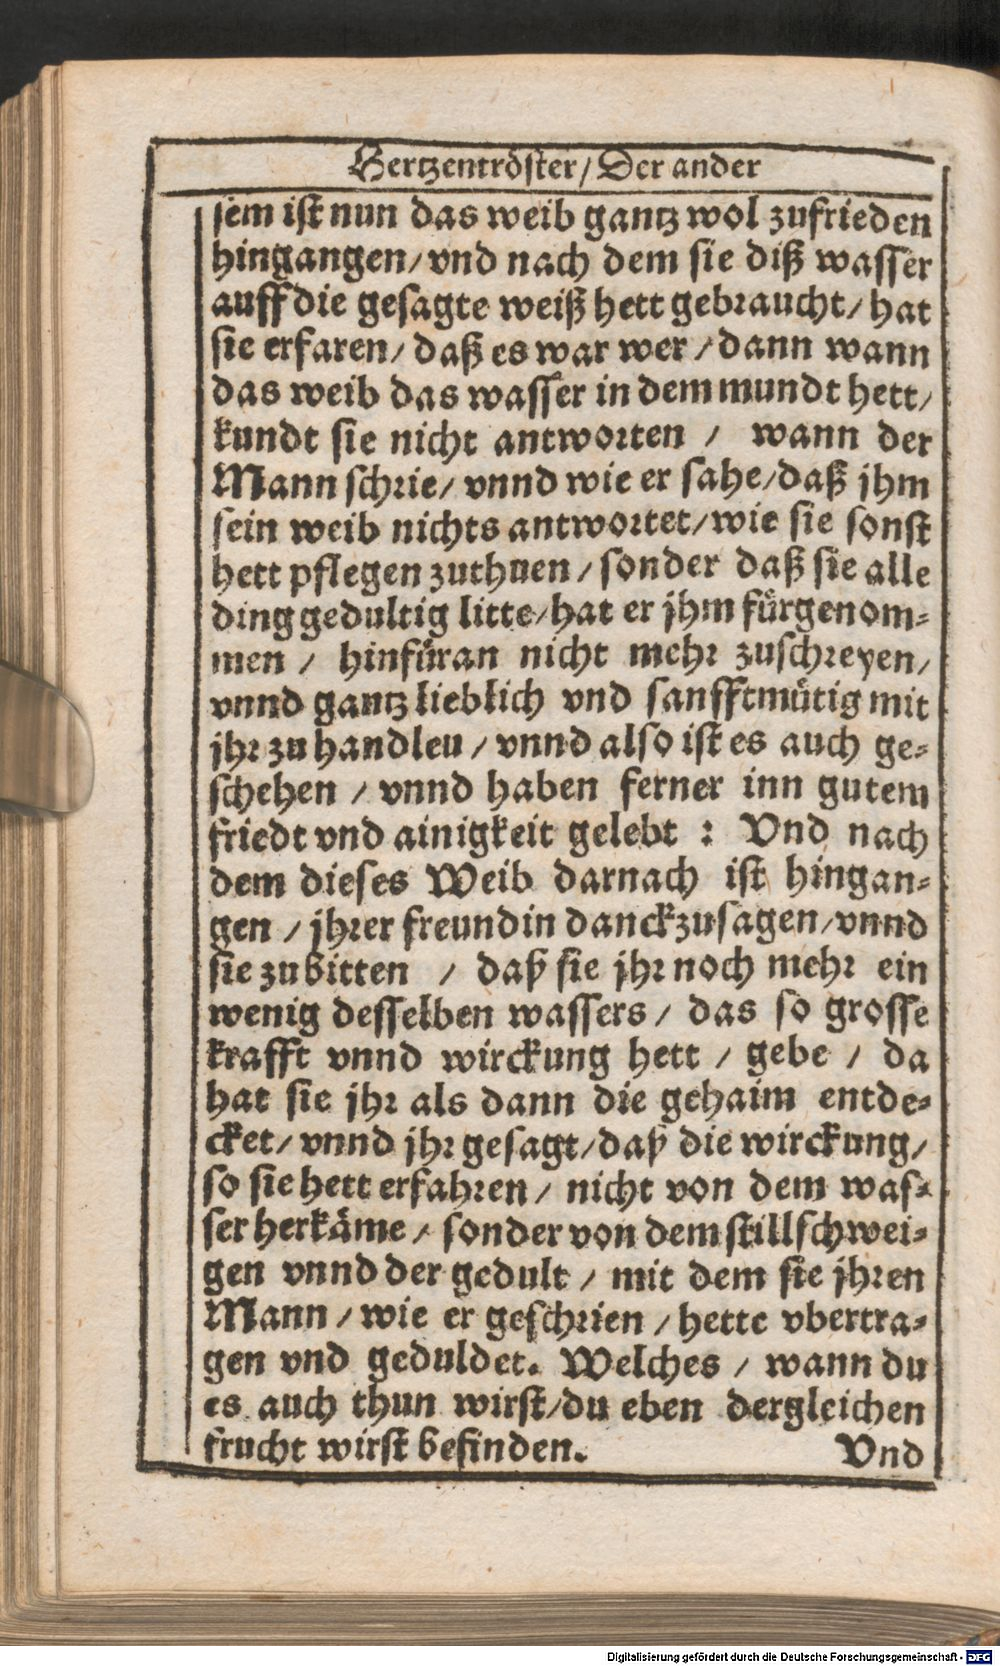 Hertzentröster/ Der ander
sem ist nun das weib gantz wol zufrieden
hingangen/ vnd nach dem sie diß wasser
auff die gesagte weiß hett gebraucht/ hat
sie erfaren/ daß es war wer / dann wann
das weib das wasser in dem mundt hett/
kundt sie nicht antworten / wann der
Mann schrie/ vnnd wie er sahe/daß jhm
sein weib nichts antwortet/wie sie sonst
hett pflegen zuthuen / sonder daß sie alle
ding gedultig litte/hat er jhm fürgenom-
men / hinfüran nicht mehr zuschreyen/
vnnd gantz lieblich vnd sanfftmütig mit
jhr zu handleu / vnnd also ist es auch ge-
schehen / vnnd haben ferner inn gutem
friedt vnd ainigkeit gelebt : Vnd nach
dem dieses Weib darnach ist hingan-
gen / jhrer freundin danckzusagen/vnnd
sie zu bitten / daß sie jhr noch mehr ein
wenig desselben wassers / das so grosse
krafft vnnd wirckung hett / gebe / da
hat sie jhr als dann die gehaim entde-
cket/ vnnd jhr gesagt/daß die wirckung/
so sie hett erfahren / nicht von dem was-
ser herkäme / sonder von dem stillschwei-
gen vnnd der gedult / mit dem sie jhren
Mann / wie er geschrien / hette vbertra-
gen vnd geduldet. Welches / wann du
es auch thun wirst/du eben dergleichen
frucht wirst befinden. Vnd
Digitalisierung gefördert durch die Deutsche Forschungsgemeinschaft - DFG